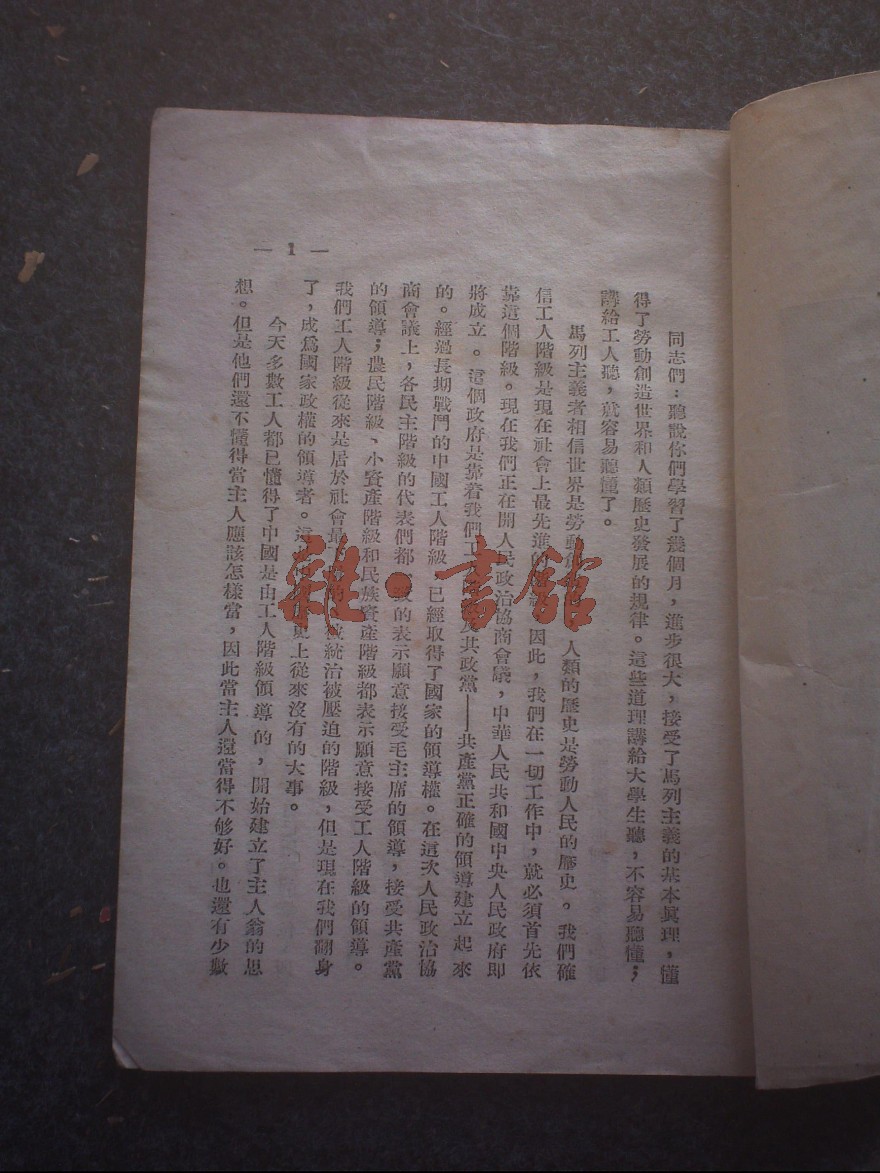 同志們：聽說你們學習了幾個月，進步很大，接受了馬列主義的基本眞理，懂
得了勞動創造世界和人類歷史發展的規律。這些道理講給大學生聽，不容易聽懂；
講給工人聽，就容易聽懂了。
馬列主義者相信世界是勞動 人類的歷史是勞動人民的歷史。我們確
信工人階級是現在社會上最先進的 因此，我們在一切工作中，就必須首先依
靠這個階級。現在我們正在開人民政治協商會議，中華人民共和國中央人民政府卽
將成立。這個政府是靠着我們工 及其政黨——共產黨正確的領導建立起來
的。經過長期戰鬥的中國工人階級 已經取得了國家的領導權。在這次人民政治協
商會議上，各民主階級的代表們都 致的表示願意接受毛主席的領導，接受共產黨
的領導；農民階級、小資產階級和民族資產階級都表示願意接受工人階級的領導。
我們工人階級從來是居於社會最 被統治被壓迫的階級，但是現在我們翻身
了，成爲國家政權的領導者。這 史上從來沒有的大事。
今天多數工人都已懂得了中國是由工人階級領導的，開始建立了主人翁的思
想。但是他們還不懂得當主人應該怎樣當，因此當主人還當得不够好。也還有少數
— 1 —
雜·書館